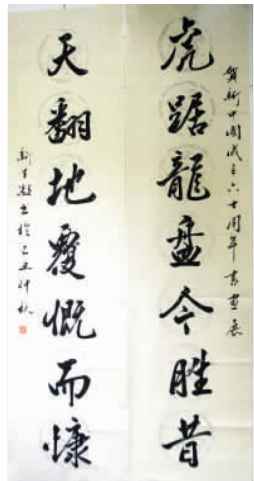 賀新中國成立六十周年書畫展
虎踞龍盘今胜昔
天翻地覆慨而慷
書於己丑仲秋